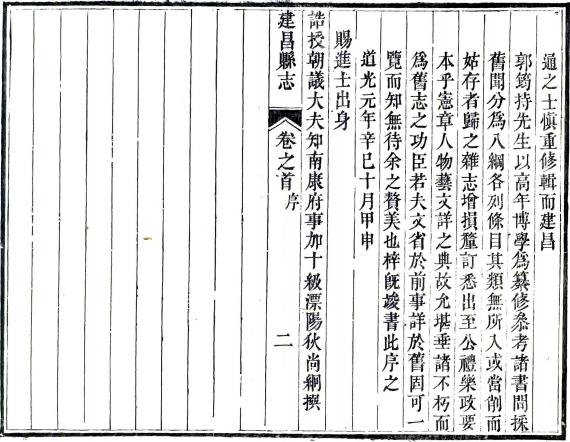 通之士慎重修輯而建昌
郭筠持先生以高年博學爲纂修叅考諸書問採
舊聞分爲八綱各列條目其類無所入或當削而
姑存者歸之雜志增損釐訂悉出至公禮樂政要
本乎憲章人物藝文詳之典故允堪垂諸不朽而
爲舊志之功臣若夫文省於前事詳於舊固可一
覽而知無待余之贊美也梓旣竣書此序之
道光元年辛巳十月甲申
賜進士出身
誥授朝議大夫知南康府事加十級溧陽狄尚絅撰
建昌縣志
卷之首
序
二